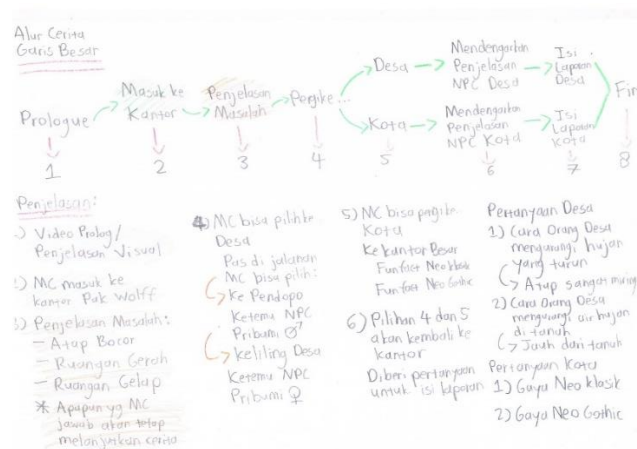 Alur Cerita
Garis Besar
Prologue
Masuk ke
Kantor
Penjelasan
Masalah
Pergi ke...
Desa
Kota
Mendengarkan
Penjelasan
NPC Desa
Mendengarkan
Penjelasan
NPC Kota
Isi
Laporan
Desa
Isi
Laporan
Kota
1
2
3
4
5
6
7
8
Penjelasan:
) Video Prolog/
Penjelasan Visual
) MC masuk ke
kantor Pak Wolff
3) Penjelasan Masalah:
- Atap Bocor
- Ruangan Gerah
- Ruangan Gelap
* Apapun yg MC
jawab akan tetap
melanjutkan cerita
4) MC bisa pilih ke
Desa
Pas di jalanan
MC bisa pilih:
Ke Pendopo
Ketemu NPC
Pribumi ♂
keliling Desa
Ketemu NPC
Pribumi ♀
5) MC bisa pagi ke
Kota
Ke kantor Besar
Funfact Neo klasik
Funfact Neo Gothic
6) Pilihan 4 dan 5
akan kembali ke
kantor
Diberi pertanyaan
untuk isi laporan
Pertanyaan Desa
1) Cara Orang Desa
mengurangi hujan
yang turun
Atap sangat miring
2) Cara Orang Desa
mengurangi air hujan
di tanah
Jauh dari tanah
Pertanyaan Kota
1) Gaya Neo klasik
2) Gaya Neo Gothic